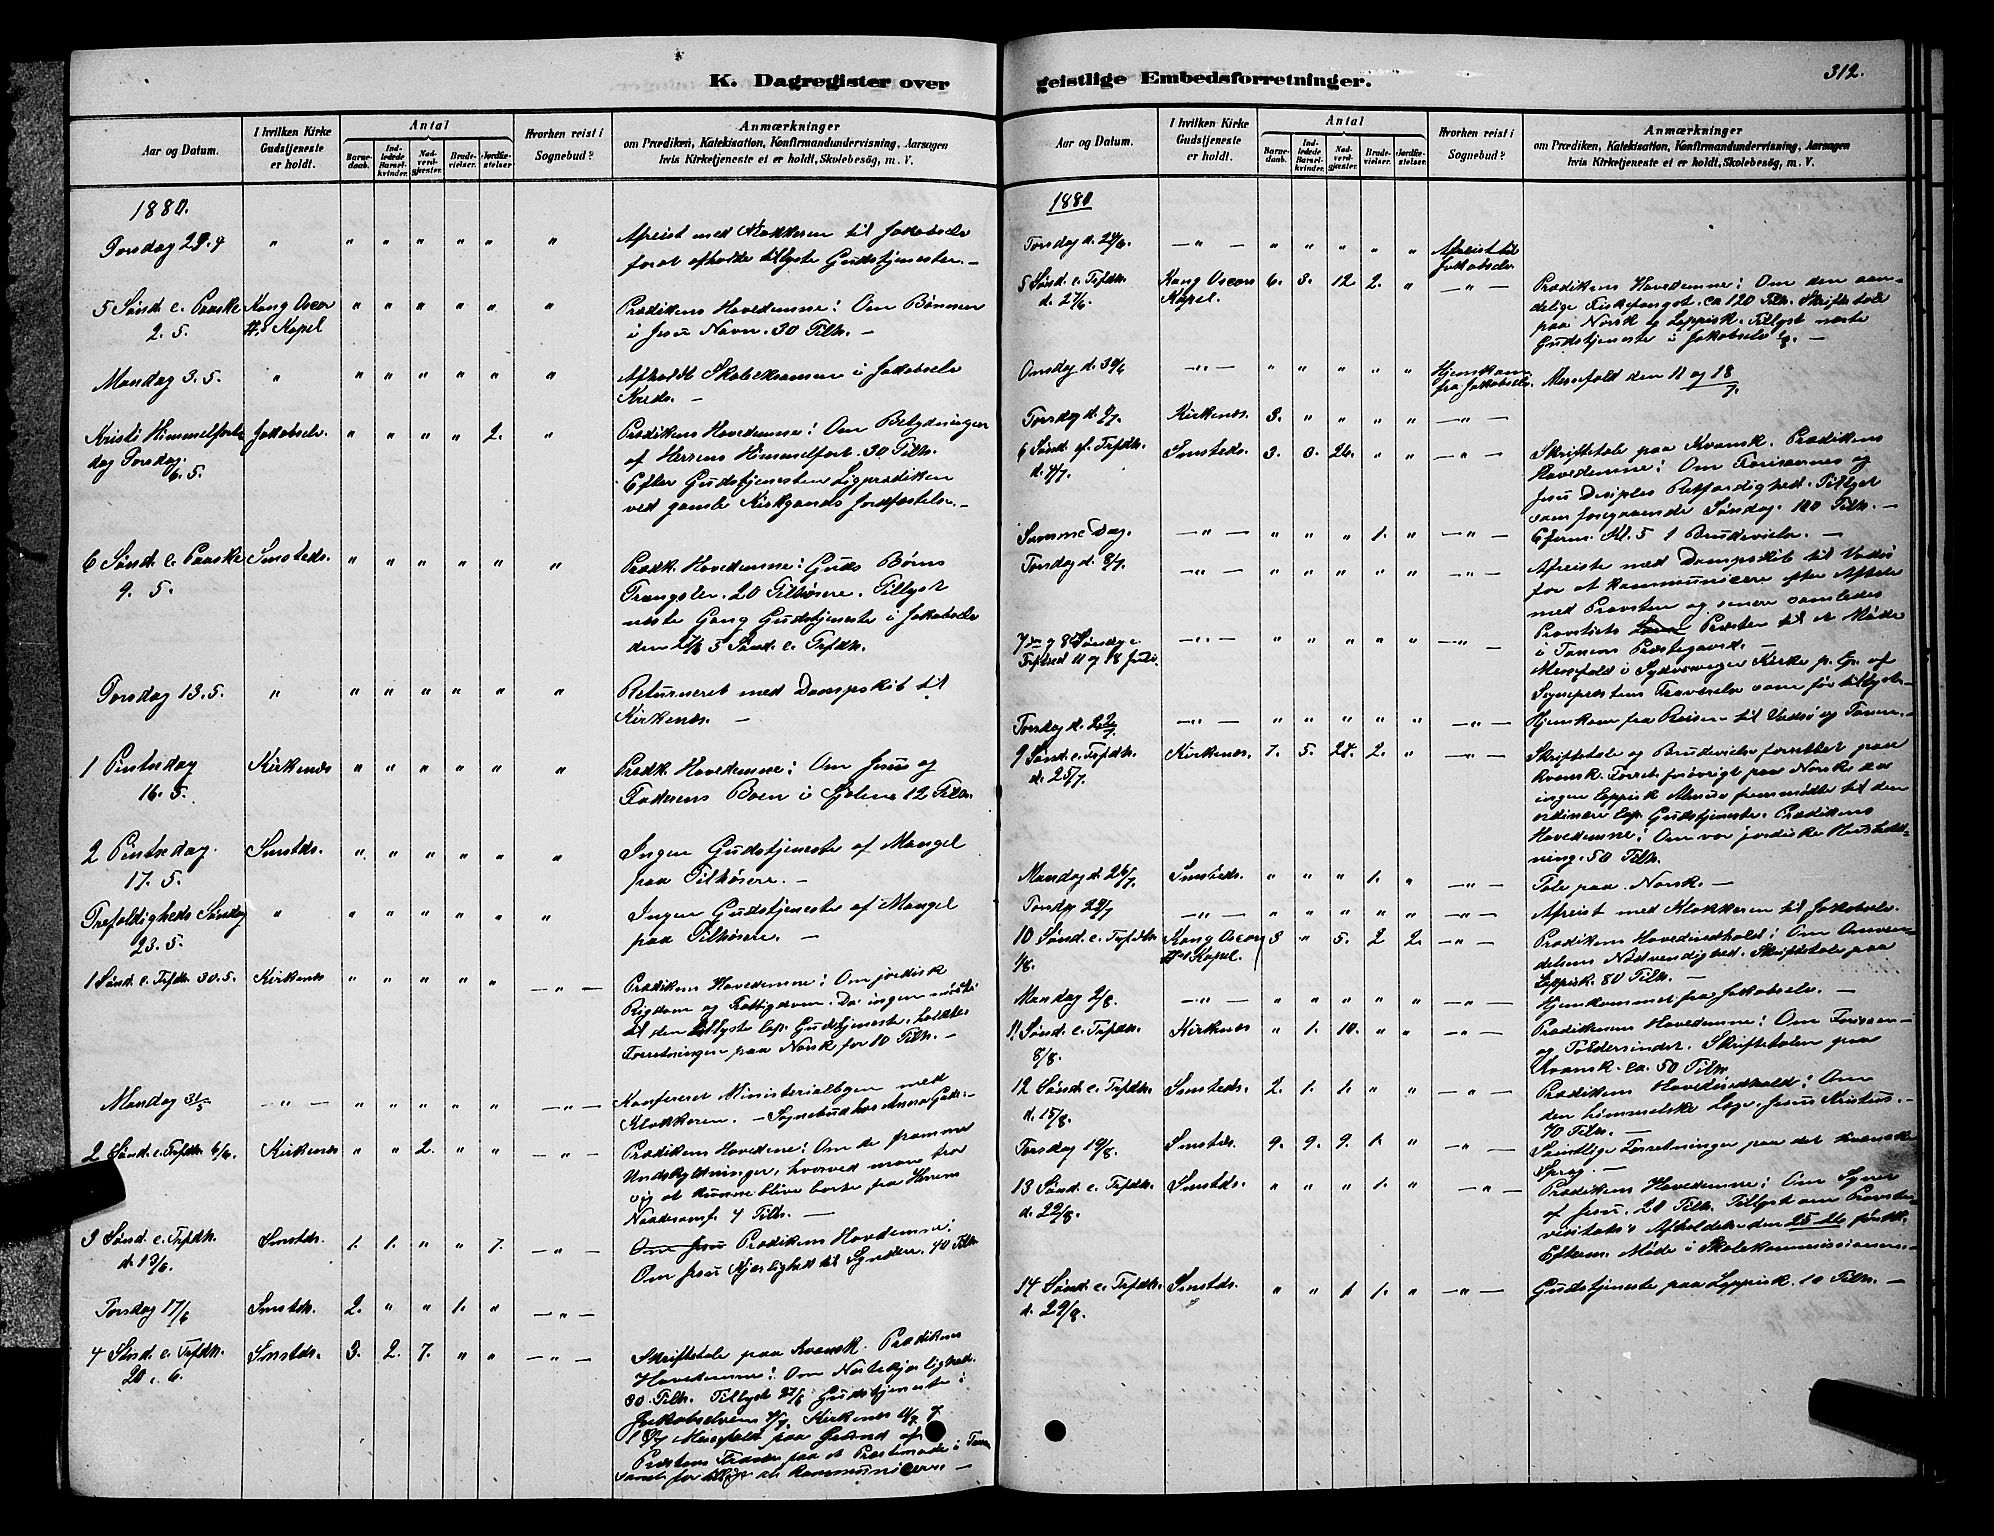 K. Dagregister over geistlige Embedsforretninger.
312.
Aar og Datum.
I hvilken Kirke Gudstjeneste er holdt.
Antal
Barnedaab.
Indledede Barselkvinder.
Nadverdgjæster.
Brudevielser.
Jordfæstelser
Hvorhen reist i Sognebud?
Anmærkninger
om Prædiken, Katekisation, Konfirmandundervisning, Aarsagen
hvis Kirketjeneste ei er holdt, Skolebesög, m. V.
1880.
Torsdag 29.4 " " " " " " "
Afreist med Klokkeren til Jakobselv
forat afholde tillyste Gudstjenester. —
5 Sönd. e. Paaske Kong Oscar " " " " " "
2. 5. IIs Kapel
Prædikens Hovedemne: Om Bönnen
i Jesu Navn. 30 Tilh. —
Mandag 3. 5. " " " " " " "
Afholdt Skoleexamen i Jakobselv
Kreds. —
Kristi Himmelfarts Jakobselv. " " " " 2. "
dag Torsdag
6. 5.
Prædikens Hovedemne: Om Betydningen
af Herrens Himmelfart. 30 Tilh.
Efter Gudstjenesten Ligprædiken
ved gamle Jordfæstelse. —
6 Sönd. e. Paaske Smsteds. " " " " " "
9. 5.
Prædk. Hovedemne: Guds Börns
Trængsler. 20 Tilhörere. Tillyst
neste Gang Gudstjeneste i Jakobselv
den 27/6 5 Sönd. e. Trefdh.
Torsdag 13. 5. " " " " " " "
Returneret med Dampskib til
Kirkenes. —
1 Pintsedag Kirkenes " " " " " "
16. 5.
Prædk. Hovedemne: Om Jesus og
Faderens Boen i Sjelene 12 Tilh.
2 Pintsedag. Smstds. " " " " " "
17. 5.
Ingen Gudstjeneste af Mangel
paa Tilhörere. —
Trefoldigheds Söndag " " " " " " "
23. 5.
Ingen Gudstjeneste af Mangel
paa Tilhörere. —
1 Sönd. e. Trfdh. 30.5. Kirkenes " " " " " — " —
Prædikens Hovedemne: Om jordisk
Rigdom og Fattigdom. Da ingen mödte
til den tillyste lap. Gudstjeneste, holdtes
Forretningen paa Norsk for 10 Tilh. —
Mandag 31/5 — " — " " " " " — " —
Konfereret Ministerialbogen med
Klokkeren. — Sognebud hos Anna
2 Sönd. e. Trefdh. 6/6. Kirkenes " " 2. " " — " —
Prædikens Hovedemne: Om de fromme
Undskyldninger, hvorved man tror
sig at kunne blive borte fra Herrens
Naadesamf. 4 Tilh. —
3 Sönd. e. Trfdh. Smstds. 1. 1. " " 7. — " —
d. 13/6.
Om Jesu Prædikens Hovdemne:
Om Jesu Kjærlighed til Syndere. 40 Tilh.
Torsdag 17/6 Smstds. 2. " " 1. " — " —
4 Sönd. e. Trfdh. Smstds. 3. 2. 7. " " — " —
20. 6.
Skriftetale paa Kvensk. Prædikens
Hovedemne: Om Nestekjærlighed.
30 Tilh. Tillyst 27/6 Gudstjeneste i
Jakobselven, 4/7 Kirkenes
Messefald paa Grund af
Præstens Fravær paa et Præstemöde i Tanen
samt for at kommunicere —
Aar og Datum.
I hvilken Kirke Gudstjeneste er holdt.
Antal
Barnedaab.
Indledede Barselkvinder.
Nadverdgjæster.
Brudevielser.
Jordfæstelser.
Hvorhen reist i Sognebud?
Anmærkninger
om Prædiken, Katekisation, Konfirmandundervisning, Aarsagen
hvis Kirketjeneste ei er holdt, Skolebesög, m. V.
1880
Torsdag d. 24/6. — " — " " " " " Afreist til
Jakobselv
5 Sönd. e. Trfdh. Kong Oscars 6. 3. 12 2. " — " —
d. 27/6. Kapel.
Prædikens Hovedemne: Om den aan-
delige Fiskefangst. ca 120 Tilh. Skriftetale
paa Norsk og Lappisk. Tillyst neste
Gudstjeneste i Jakobselv 1/8. —
Onsdag d. 30/6 — " — " " " " " Hjemkom
fra Jakobselv.
Messefald den 11 og 18/7
Torsdag d. 1/7 Kirkenes. 3. " " " " — " —
6 Sönd. ef. Trfdh. Smsteds. 3. 3. 26. " " — " —
d. 4/7.
Skriftetale paa Kvensk. Prædikens
Hovedemne: Om Farisæernes og
Jesu Disiples Retfærdighed. Tillyst
som foregaaende Söndag. 100 Tilh. —
Samme Dag. — " — " " " 1. " — " —
Efterm. Kl. 5 1 Brudevielse. —
Torsdag d. 8/7. — " — " " " " " — " —
Afreiste med Dampskib til Vadsö
for at kommunicere efter Aftale
med Provsten og senere samledes
Provstiets Præster til et Möde
i Tanens Præstegaard. —
7de og 8de Söndag e. — " — " " " " " — " —
Trefhed 11 og 18 Juli.
Messefald i Sydvaranger Kirke p. Gr. af
Sognepræstens Fraværelse som för tillyst. —
Torsdag d. 22/7 — " — " " " " " — " —
Hjemkom fra Reisen til Vadsö og Tanen. —
9 Sönd. e. Trefdh. Kirkenes. 7. 5. 24. 2. " — " —
d. 25/7.
Skriftetale og Brudevielse forrettet paa
Kvensk. Forret. forövrigt paa Norsk da
ingen Lappisk Almue fremmödte til den
ordinære lap. Gudstjeneste. Prædikens
Hovedemne: Om vor jordiske Hushold-
ning. 50 Tilh.
Mandag d. 26/7 Smsteds. " " " 1. " — " —
Tale paa Norsk. —
Torsdag 29/7 — " — " " " " " — " —
Afreist med Klokkeren til Jakobselv.
10 Sönd. e. Trefdh. Kong Oscars 3 " 5. 2 2. — " —
1/8. IIs Kapel.
Prædikens Hovedindhold: Om Omven-
delsens Nödvendighed. Skriftetale paa
Lappisk. 80 Tilh. —
Mandag 2/8. — " — " " " " " — " —
Hjemkommet fra Jakobselv. —
11 Sönd. e. Trefdh. Kirkenes " 1. 10. " " — " —
8/8.
Prædikenens Hovedemne: Om Farisæer-
og Toldersindet. Skriftetalen paa
Kvensk. ca. 50 Tilh.
12 Sönd. e. Trefdh. Smsteds. 2. 1. 1. " " — " —
d. 15/8.
Prædikens Hovedindhold: Om
den himmelske Læge Jesus Kristus. —
70 Tilh. —
Torsdag 19/8. Smstds. 9. 9. 9. 1. " — " —
Samtlige Forretninger paa det kvenske
Sprog. —
13 Sönd. e. Trefdh. Smstds. " " " 1. " — " —
d. 22/8.
Prædikens Hovedemne: Om Synet
af Jesu. 20 Tilh. Tillyst om Provste-
visitats's Afholdelse den 25 26
Efterm. Möde i Skolekommissionen. —
14 Sönd. e. Trefdh. Smstds. " " 1 1. " — " —
d. 29/8.
Gudstjeneste paa Lappisk. 10 Tilh. —